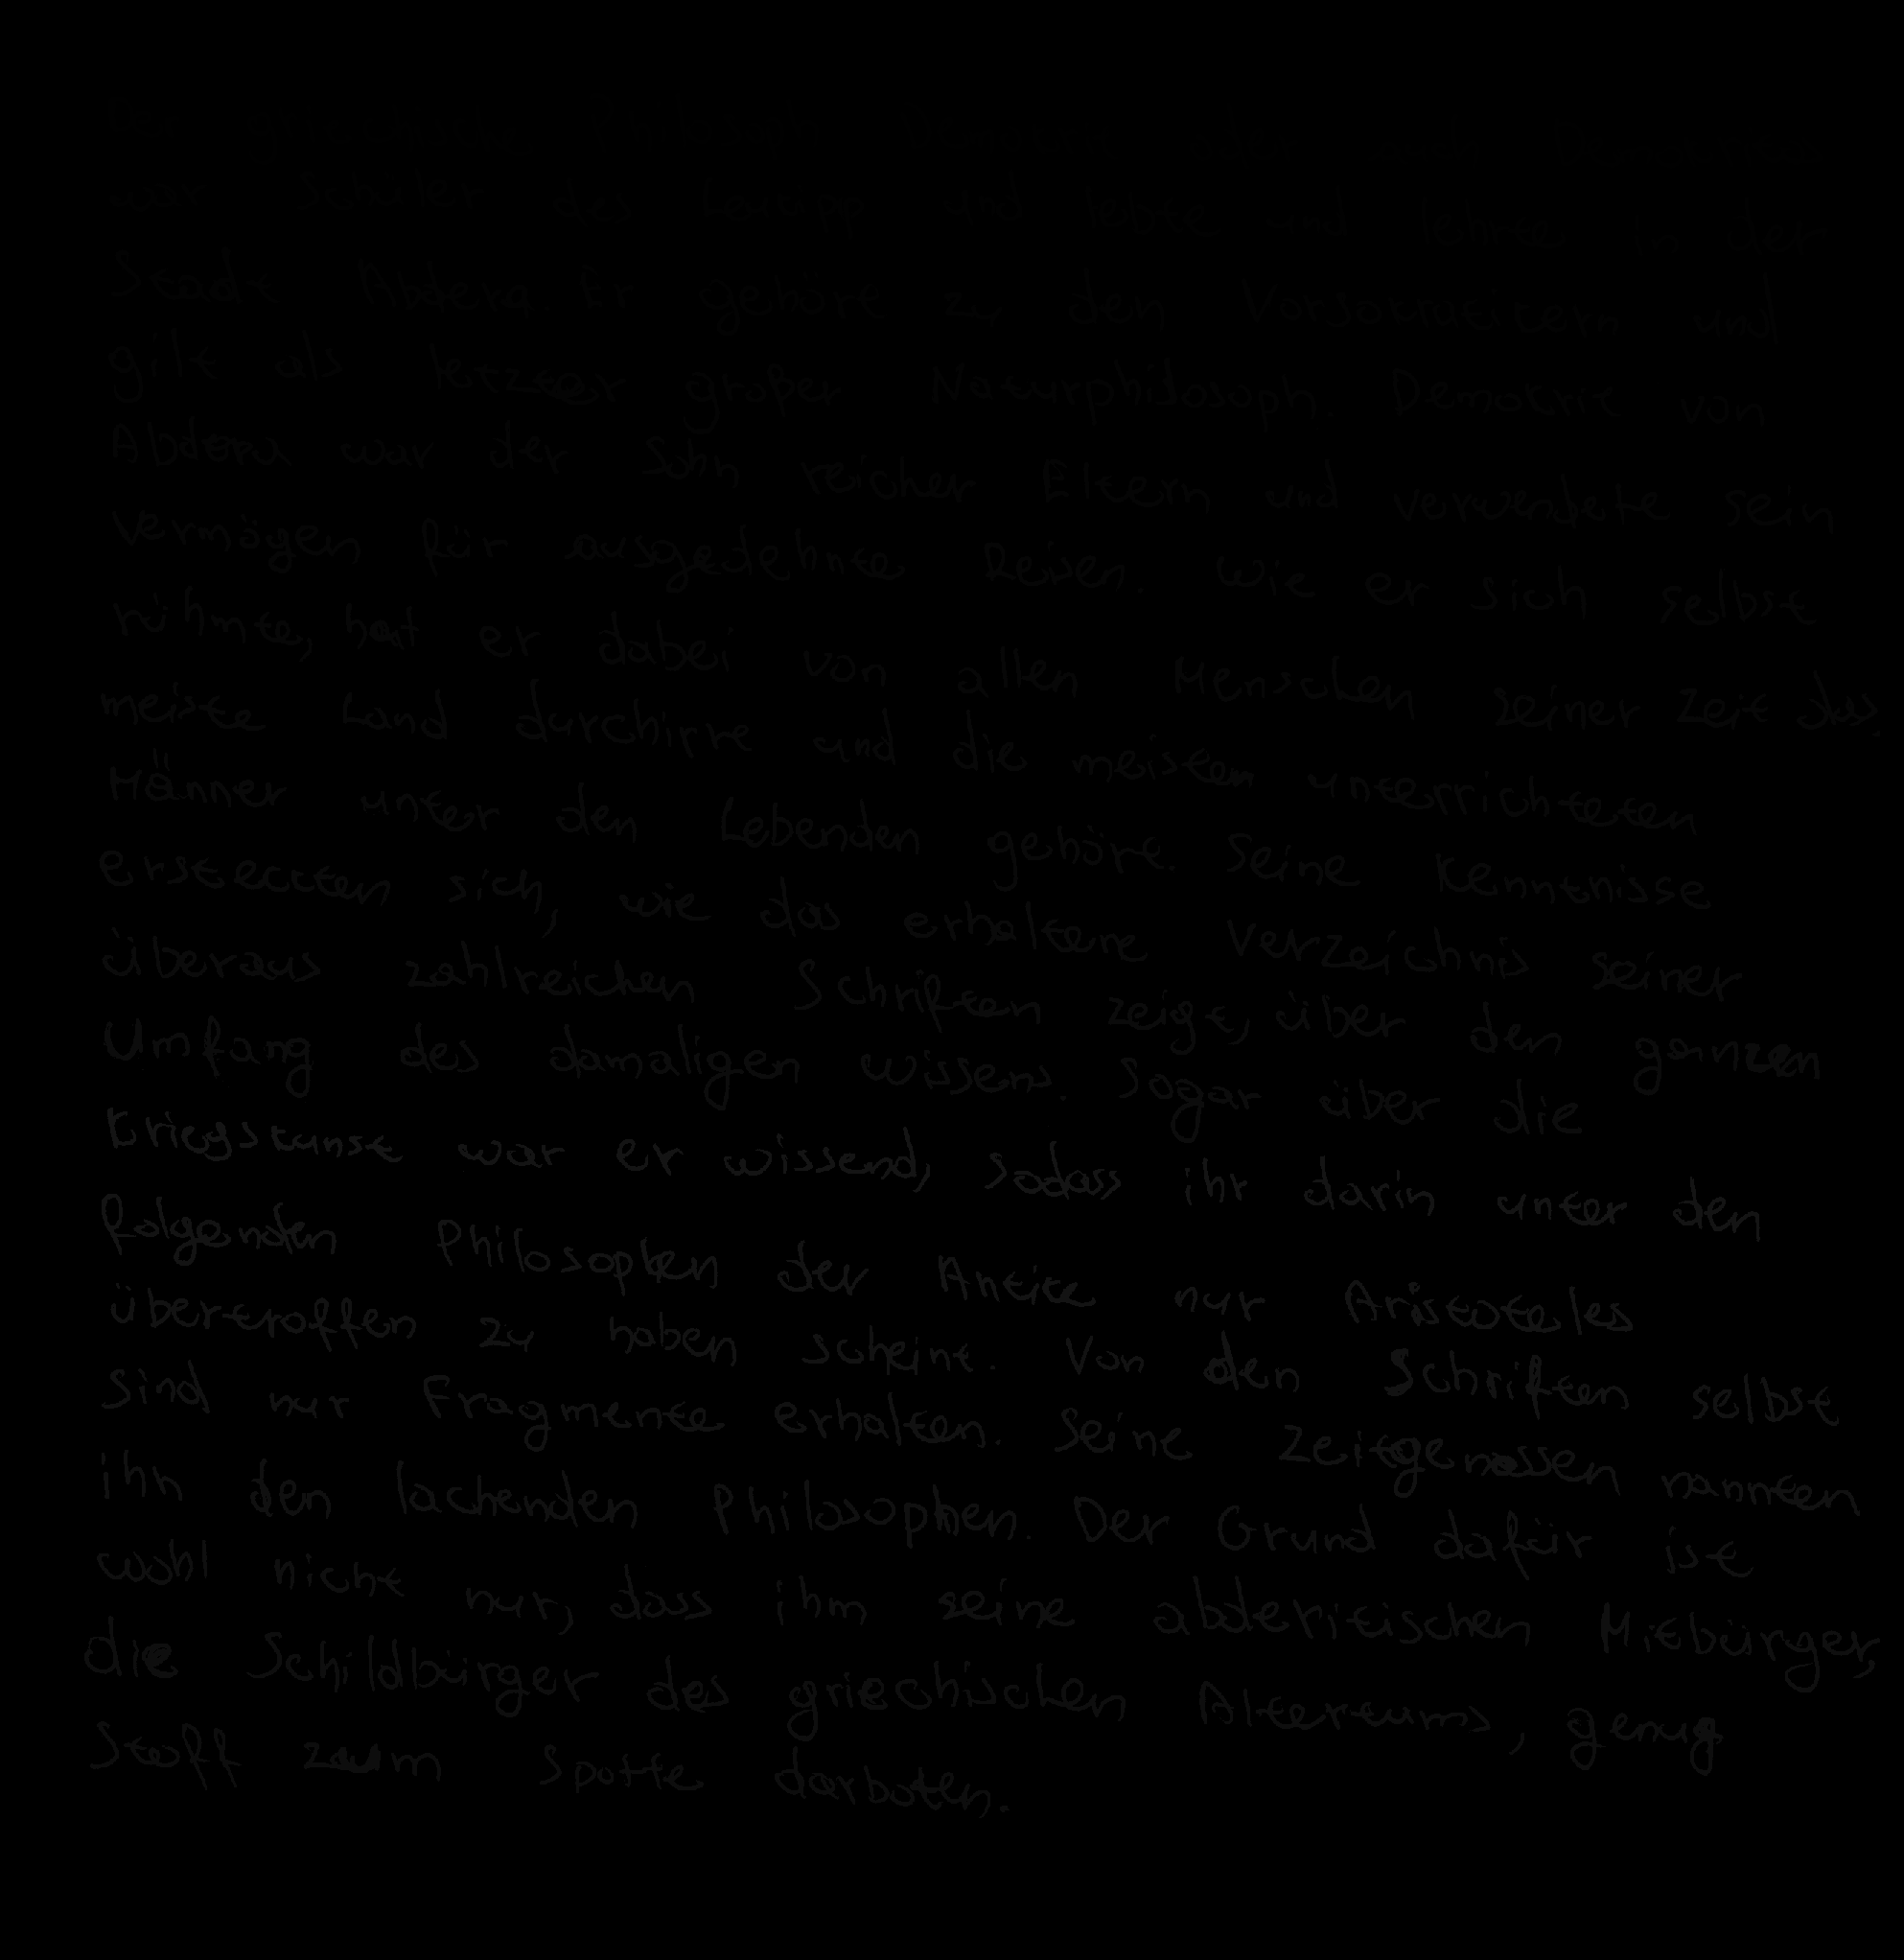 war Schüler des Leukipp und lebte und lehrte in der
Stadt Abdera. Er gehört zu den Vorsokratikern und
gilt als letzter großer Naturphilosoph. Demokrit von
Abdera war der Sohn reicher Eltern und verwendete sein
Vermögen für ausgedehnte Reisen. Wie er sich selbst
rühmte, hat er dabei von allen Menschen seiner Zeit das
meiste Land durchirre und die meisten unterrichteten
Männer unter den Lebenden gehöre. Seine Kenntnisse
ersteckten sich, wie das erhaltene Verzeichnis seiner
überaus zahlreichen Schriften zeigt, über den ganzen
Umfang des damaligen Wissens. Sogar über die
Kriegskunst war er wissend, sodass ihr darin unter den
folgenden Philosophen der Antike nur Aristoteles
übertroffen zu haben scheint. Von den Schriften selbst
sind nur Fragmente erhalten. Seine Zeitgenossen nannten
ihn den lachenden Philosophen. Der Grund dafür ist
wohl nicht nur, dass ihm seine abderitischen Mitbürger,
die Schildbürger des griechischen Altertums, genug
Stoff zum Spotte darboten.